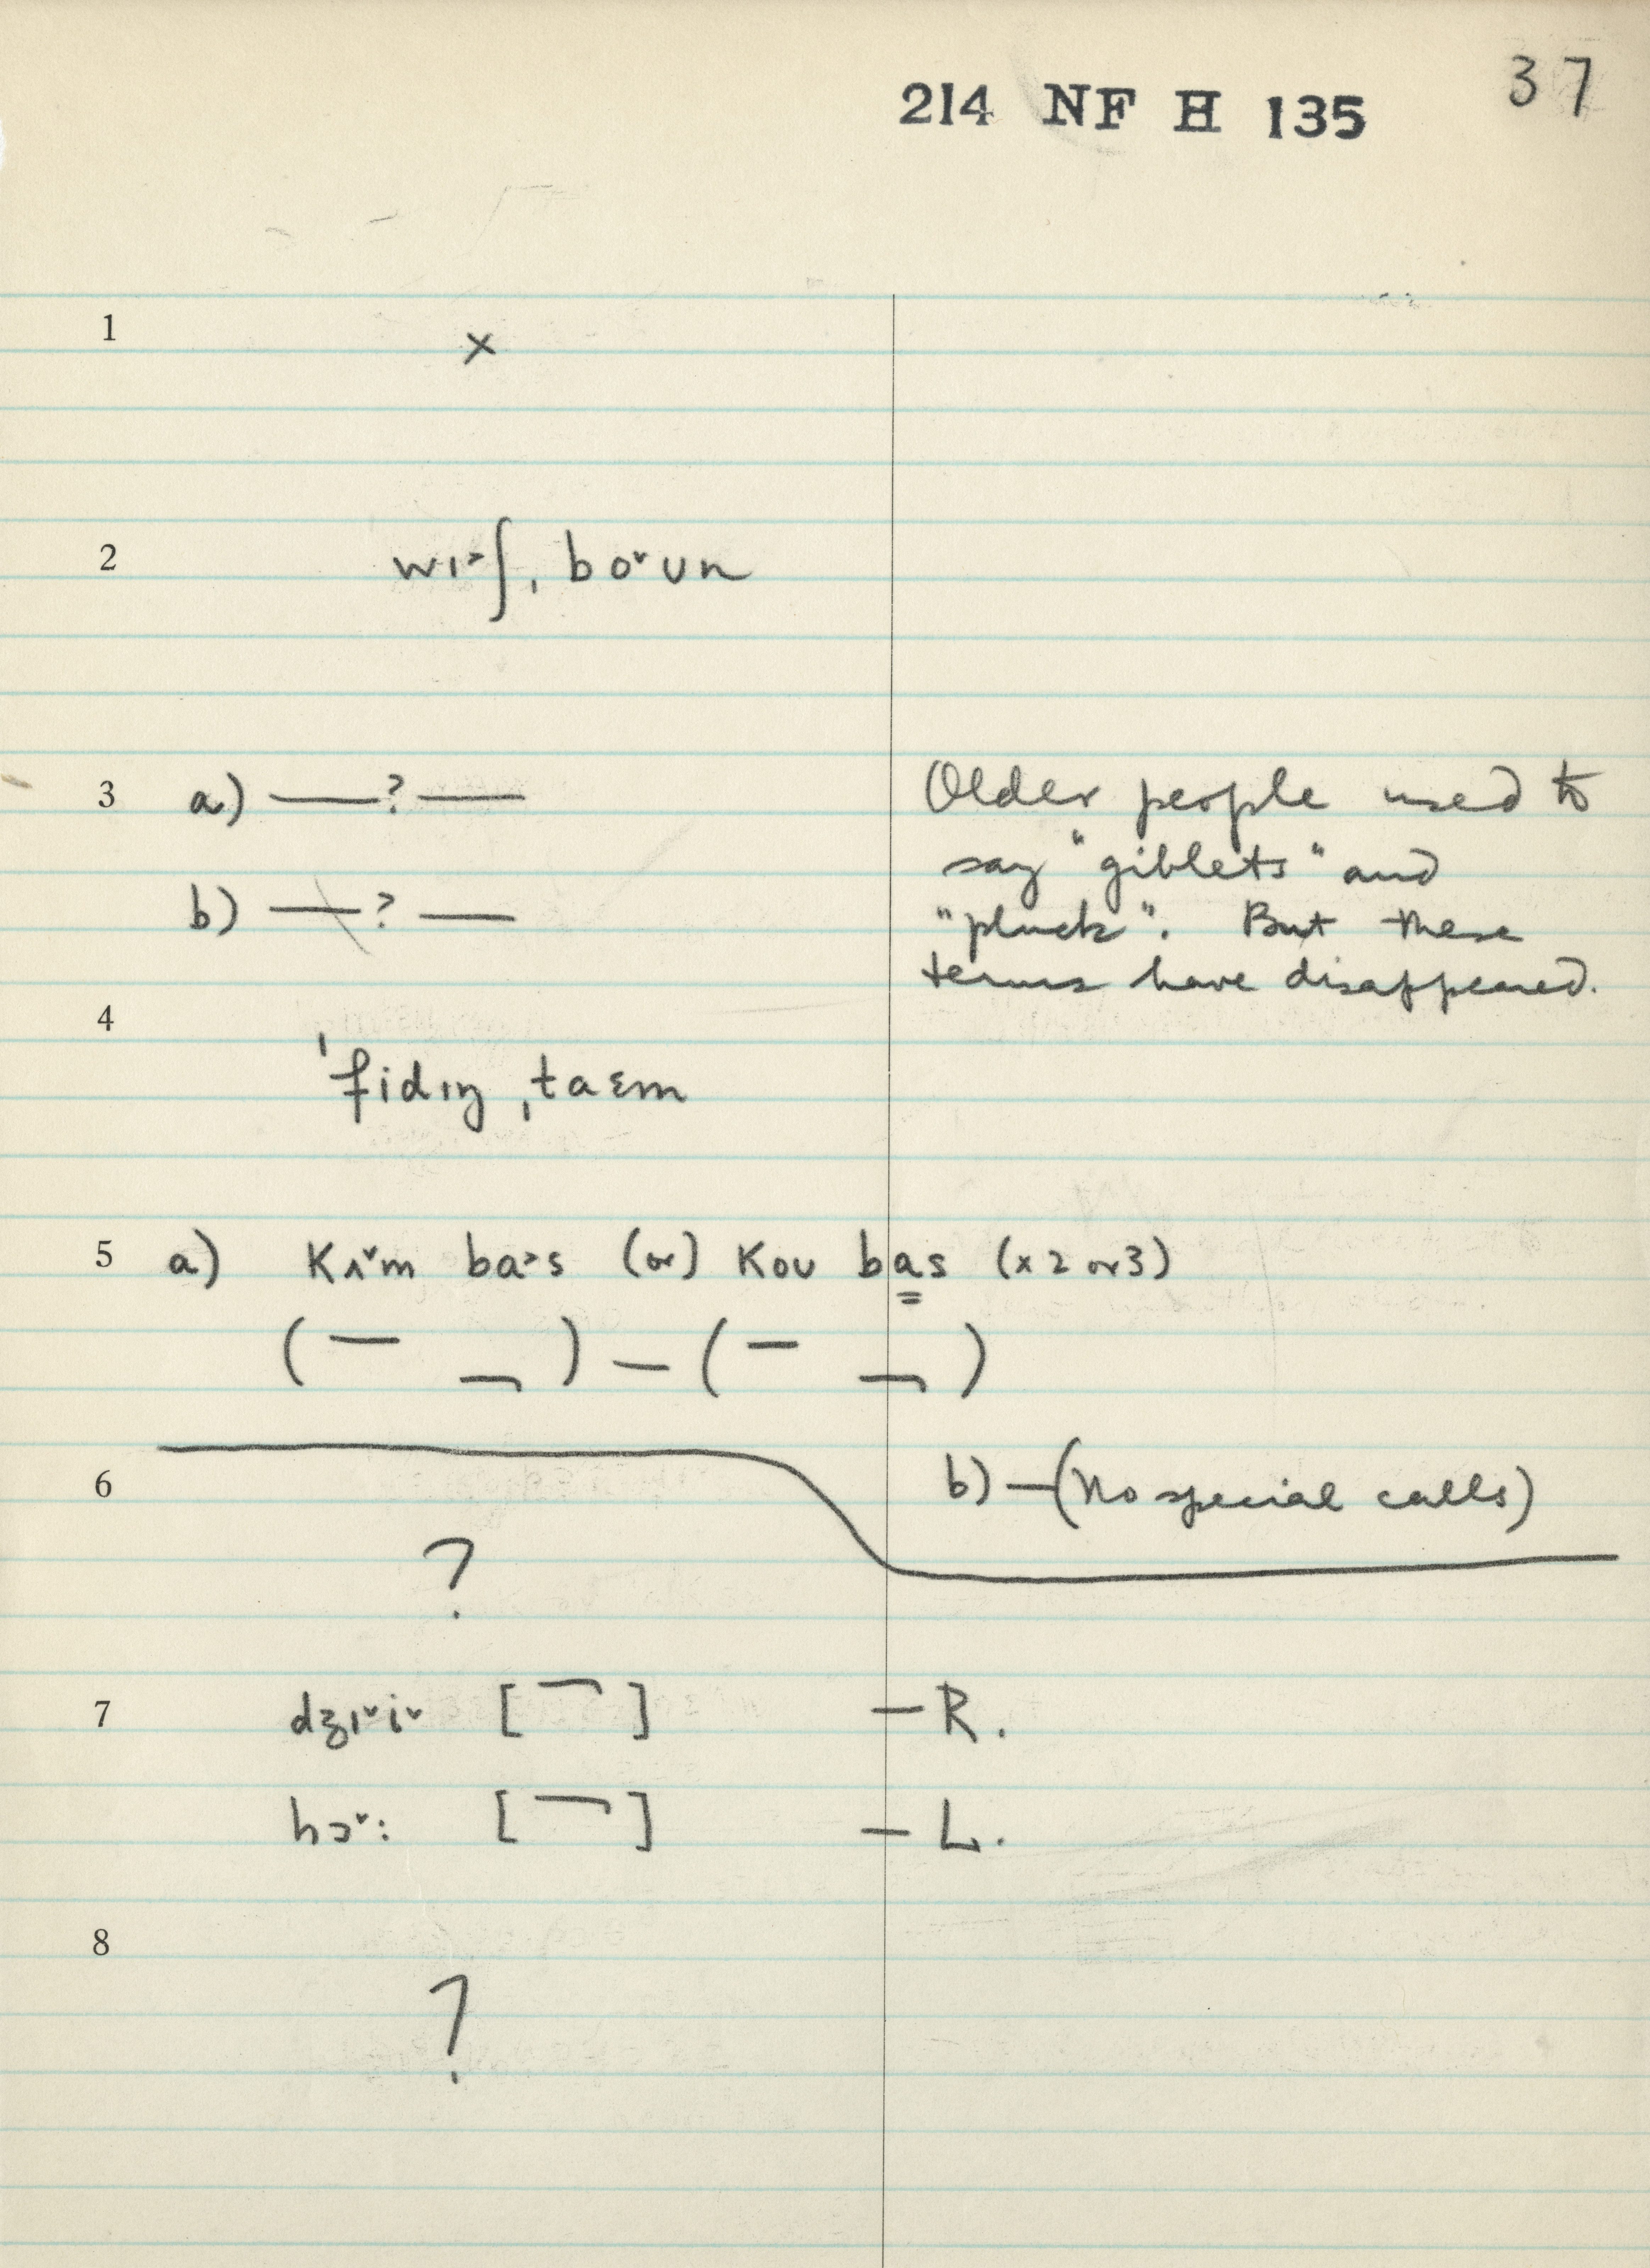 37
214 NF H 135
1 x
2 wɪ˃ʃ, bo˅ʊn
3 a) —?— Older people used to
say "giblets" and
b) —?— "pluck". But these
terms have disappeared.
4
ˈfidɪŋ ˌtaɛm
5 a) Kʌ˅m ba˃s (or) Koʊ bas (x 2 or 3)
6 b) — (No special calls)
?
7 dʒɪ˅i˅ [ ] — R.
hɔ˅: [ ] — L.
8
?